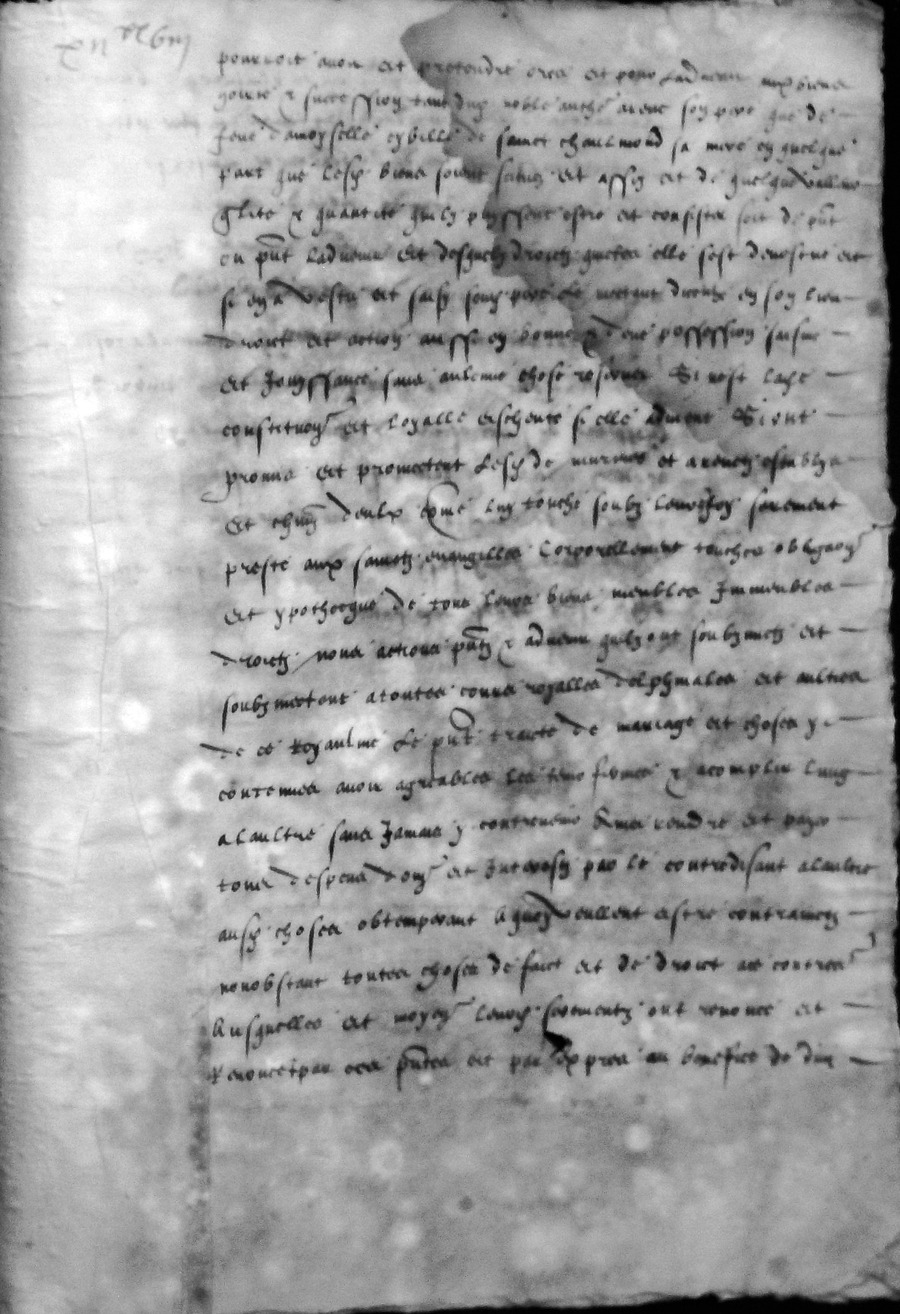 pourroit avoir et pretendre ores et pour ladvenir aux biens
hoirie & succession tant dud noble anthe avec son pere que de
feue damoyselle sybille de sainct chaulmond sa mere en quelque
part que lesd biens soient scituez et assis et de quelque valleur
qlite & quantite quilz puyssent estre et consister soit de pnt
ou pnt ladvenir et desquelz droictz quictes elle sest devestue et
si en a vestu et saisy sond pere le mectant en son lieu
droict et action aussi en bonne & deue possession saisine
et Jouyssance sans aulcune chose reserver Si nest lad
constituon et loyalle escheute si elle advient Si ont
promis et promectent lesd de et ensembles
et chun deulx come luy touche soubz leurs foy serement
preste aux sainctz evangilles corporellement touches obligaon
et ypothecque de tous leurs biens meubles Immeubles
droictz noms actions pntz & advenir quilz ont soubzmectz et
soubzmectent a toutes cours royalles delphinales et aultres
de ce Royaulme le pnt traicte de mariage et choses y
contenues avoir agreables les tenir fermes & acomplir lung
a laultre sans Jamais y contrevenir Ains rendre et payer
tous despens dom et Interestz par le contredisant a laultre
ausd choses obtemperant A quoy veullent estre contrainctz
nonobstant toutes choses de faict et de droict ace contres
Ausquelles et moyen leursd serementz ont renonce et
Renoncet par ces pntes et par expres au benefice de din